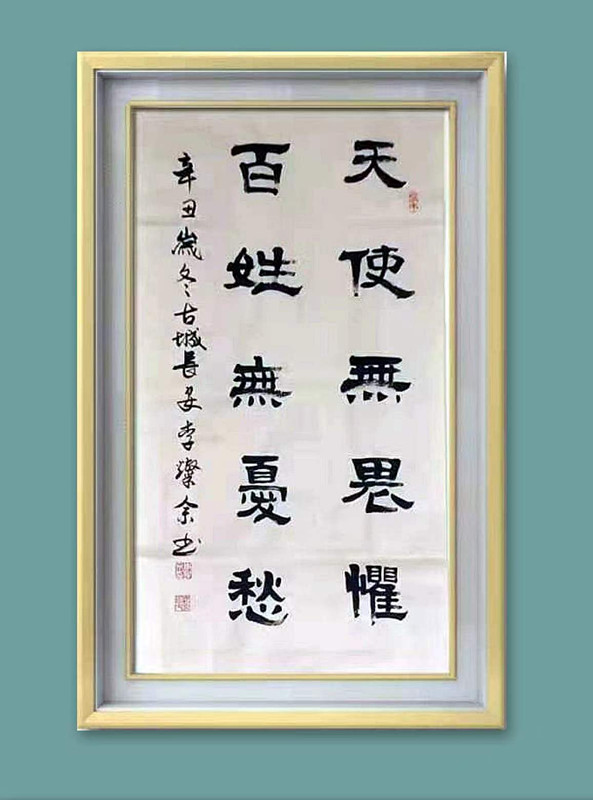 天使無畏懼
百姓無憂愁
辛丑歲冬古城長安李燦余書